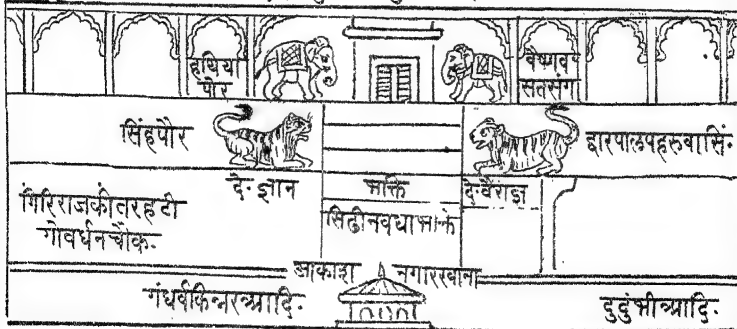 हथिया
पोर
वैष्णव
सतसंग
सिंहपौर
द्वारपालपहरुवासिं॰
दे॰ ज्ञान
भक्ति
दे॰ वैराज्ञ
गिरिराजकीतरहटी
गोवर्धनचौक॰
सिढीनवधाभक्ति
आकाश नगारखाना
गंधर्वकिन्नरआदि॰
दुदुंभीआदि॰